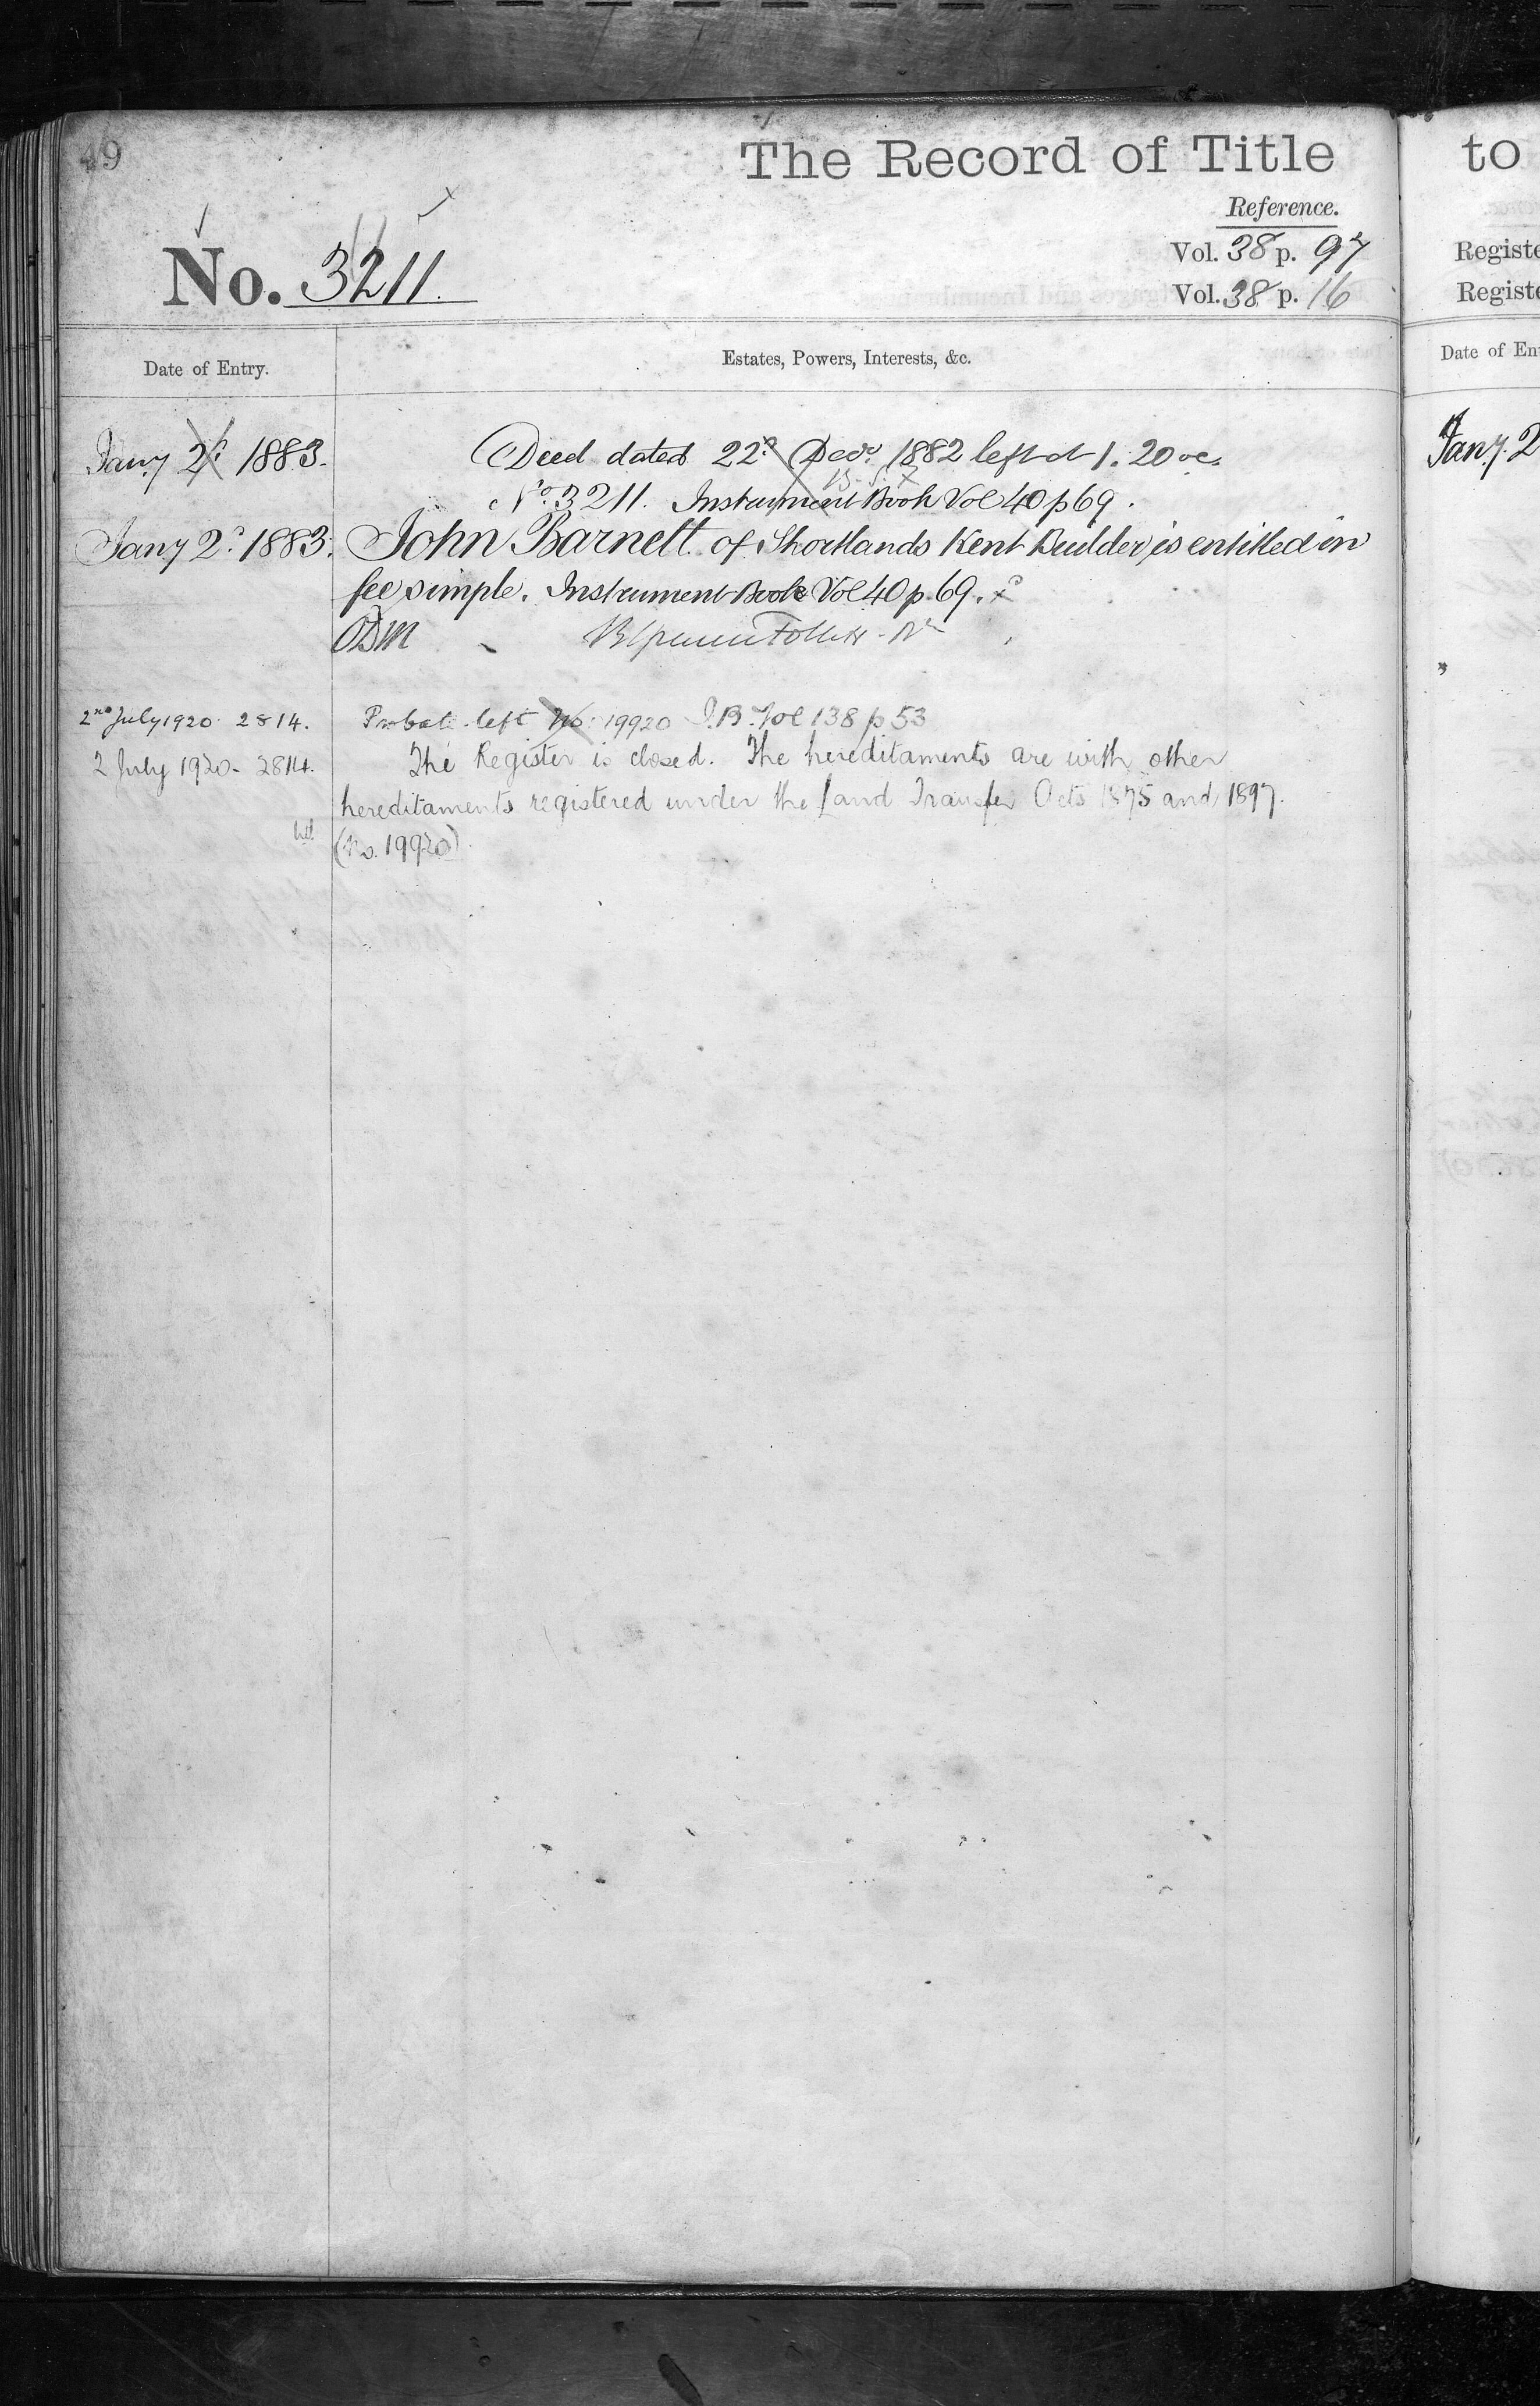 49
The Record of Title
to
Reference.
No. 3211.
Vol. 38 p. 97
Vol. 38 p. 16
Registe
Registe
Date of Entry.
Estates, Powers, Interests, &c.
Date of En
Jany 2d 1883.
Deed dated 22d Decr 1882 left at 1.20 oc.
No 3211. Instrument Book Vol 40 p 69.
Jany 2
Jany 2d 1883. John Barnett of Shortlands Kent Builder is entitled in
fee simple. Instrument Book Vol 40 p. 69.
2nd July 1920. 2814. Probate left No. 19920 I.B. Vol 138 p 53
2 July 1920. 2814. The Register is closed. The hereditaments are with other
hereditaments registered under the Land Transfer Acts 1875 and 1897.
(No. 19920)